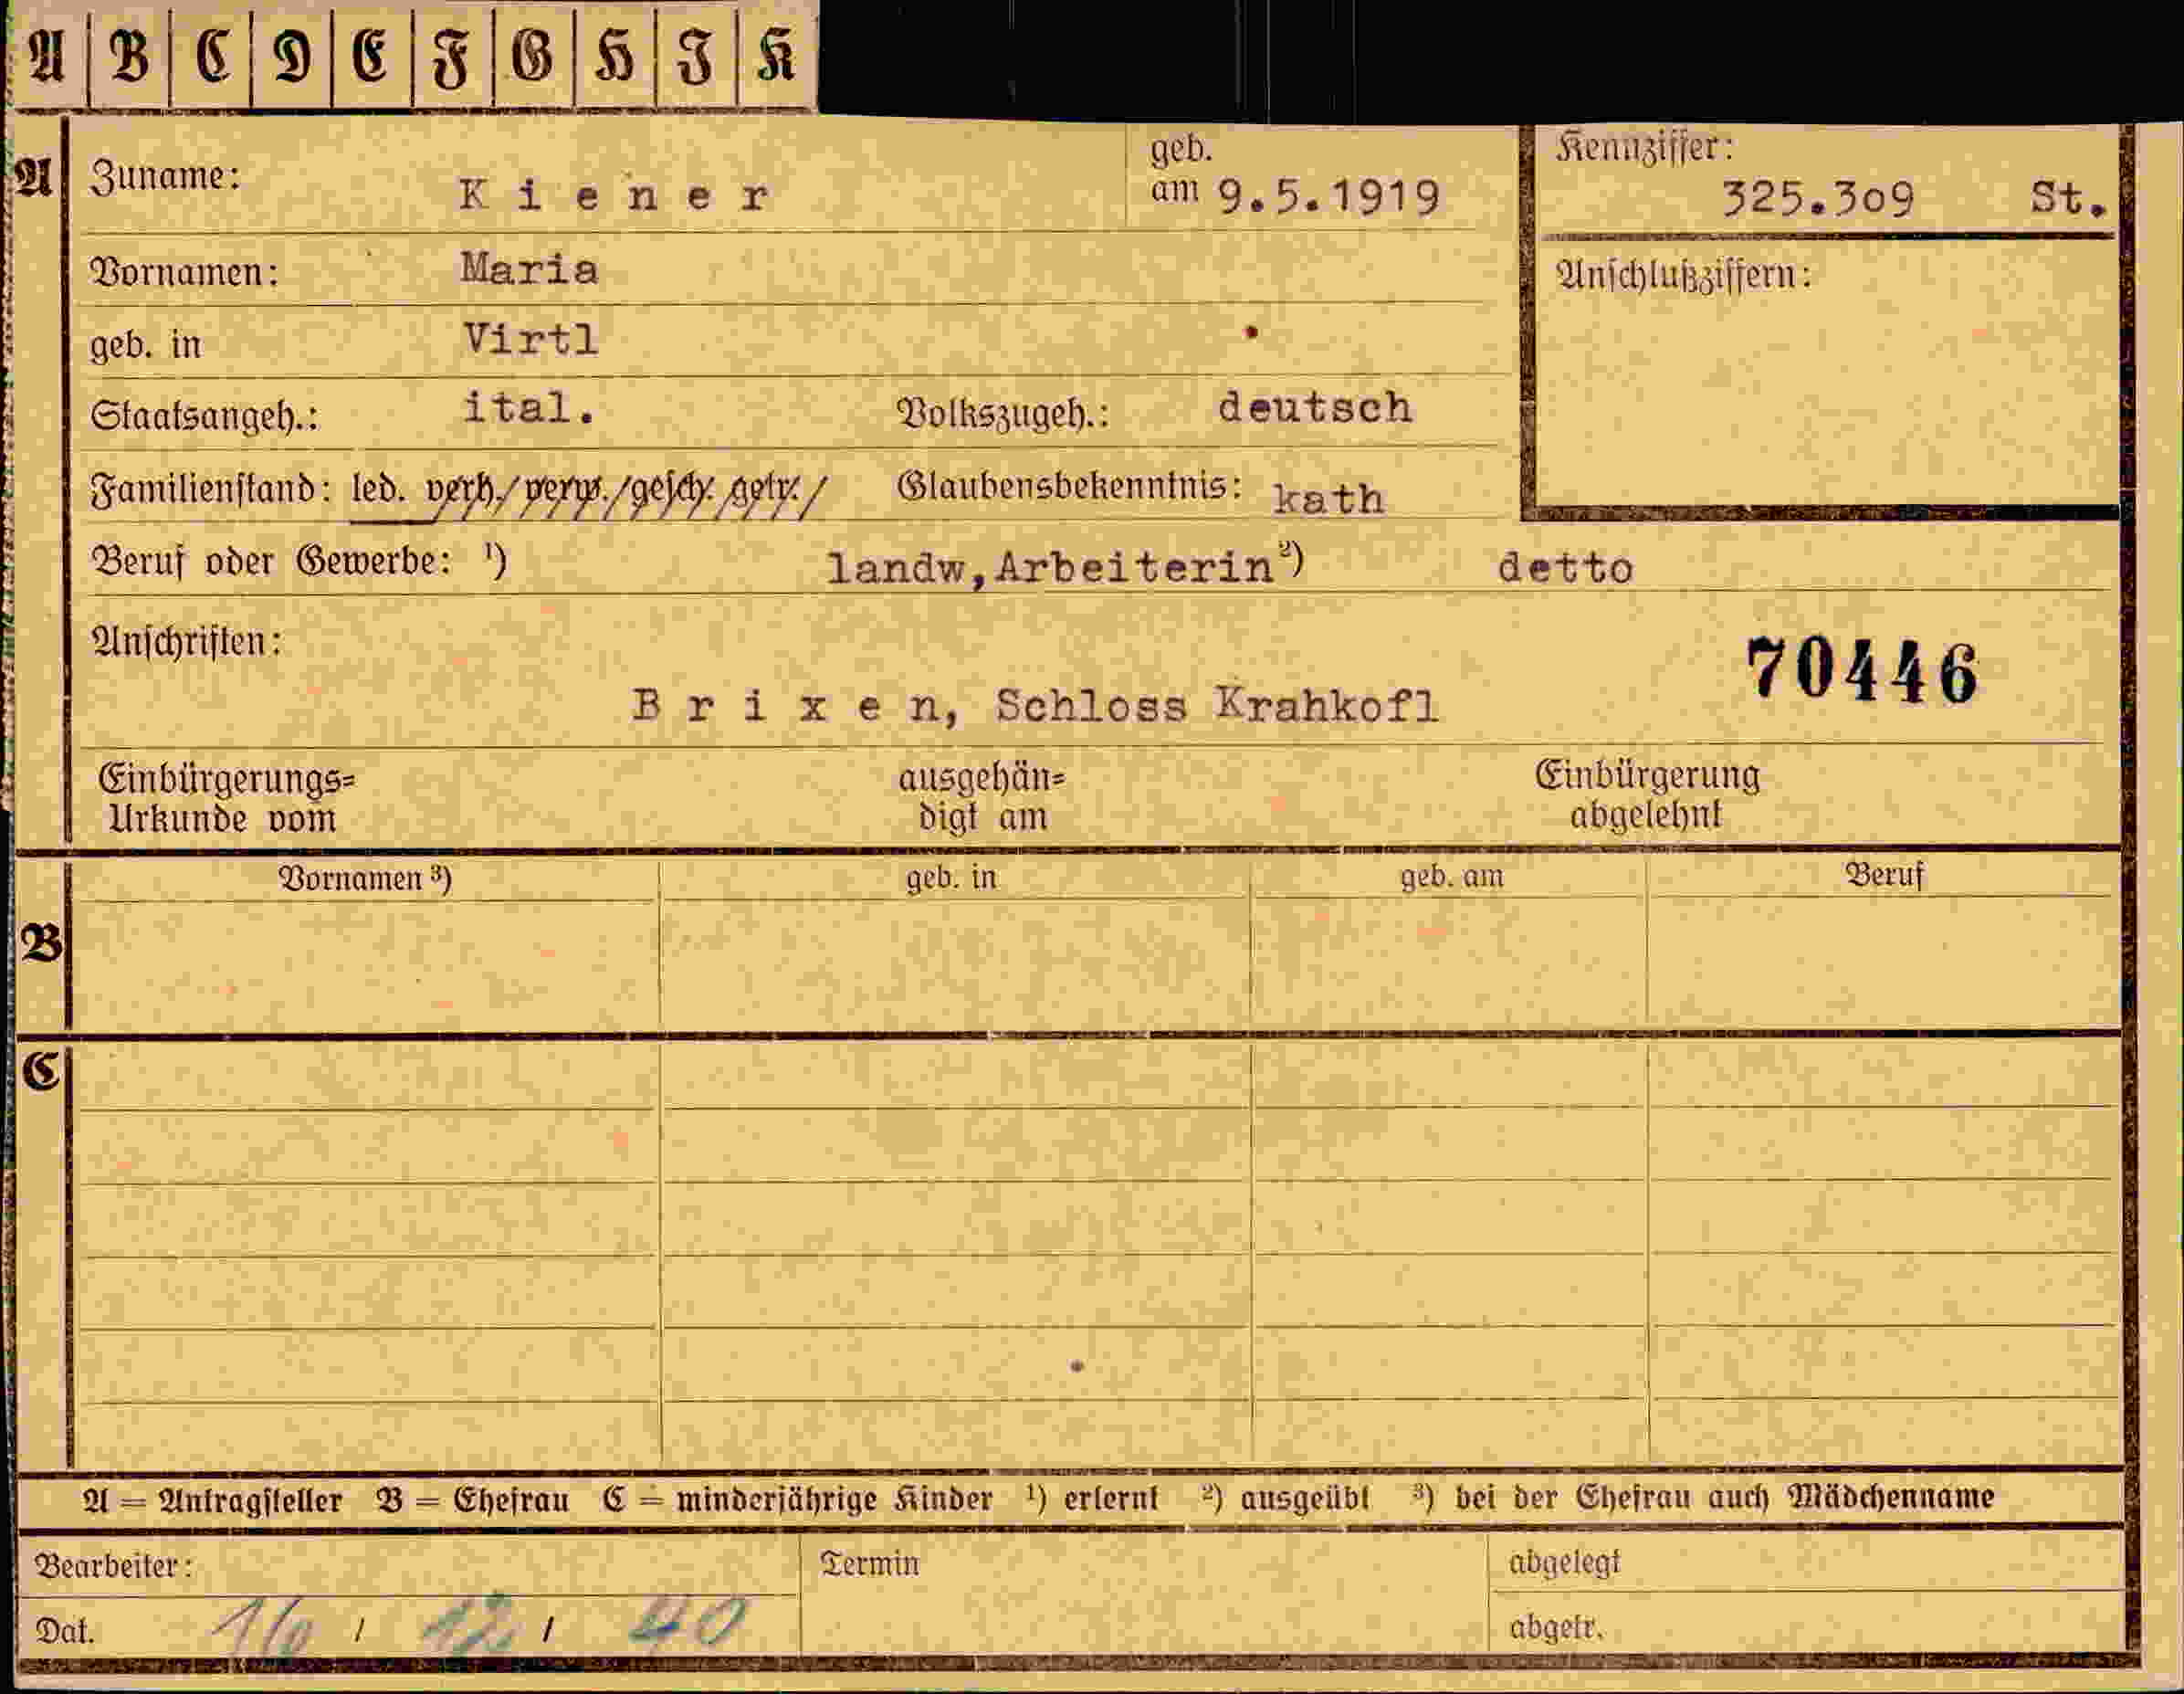 A B C D E F G H J K
A Zuname: Kiener geb. am 9.5.1919 Kennziffer: 325.309 St.
Vornamen: Maria Anschlußziffern:
geb. in Virtl
Staatsangeh.: ital. Volkszugeh.: deutsch
Familienstand: led. verh./verw./gesch. getr./ Glaubensbekenntnis: kath
Beruf oder Gewerbe: ¹) landw,Arbeiterin ²) detto
Anschriften: 70446
Brixen, Schloss Krahkofl
Einbürgerungs= ausgehän= Einbürgerung
Urkunde vom digt am abgelehnt
Vornamen ³) geb. in geb. am Beruf
B
C
A = Antragsteller B = Ehefrau C = minderjährige Kinder ¹) erlernt ²) ausgeübt ³) bei der Ehefrau auch Mädchenname
Bearbeiter: Termin abgelegt
Dat. 16 / 12 / 40 abgetr.